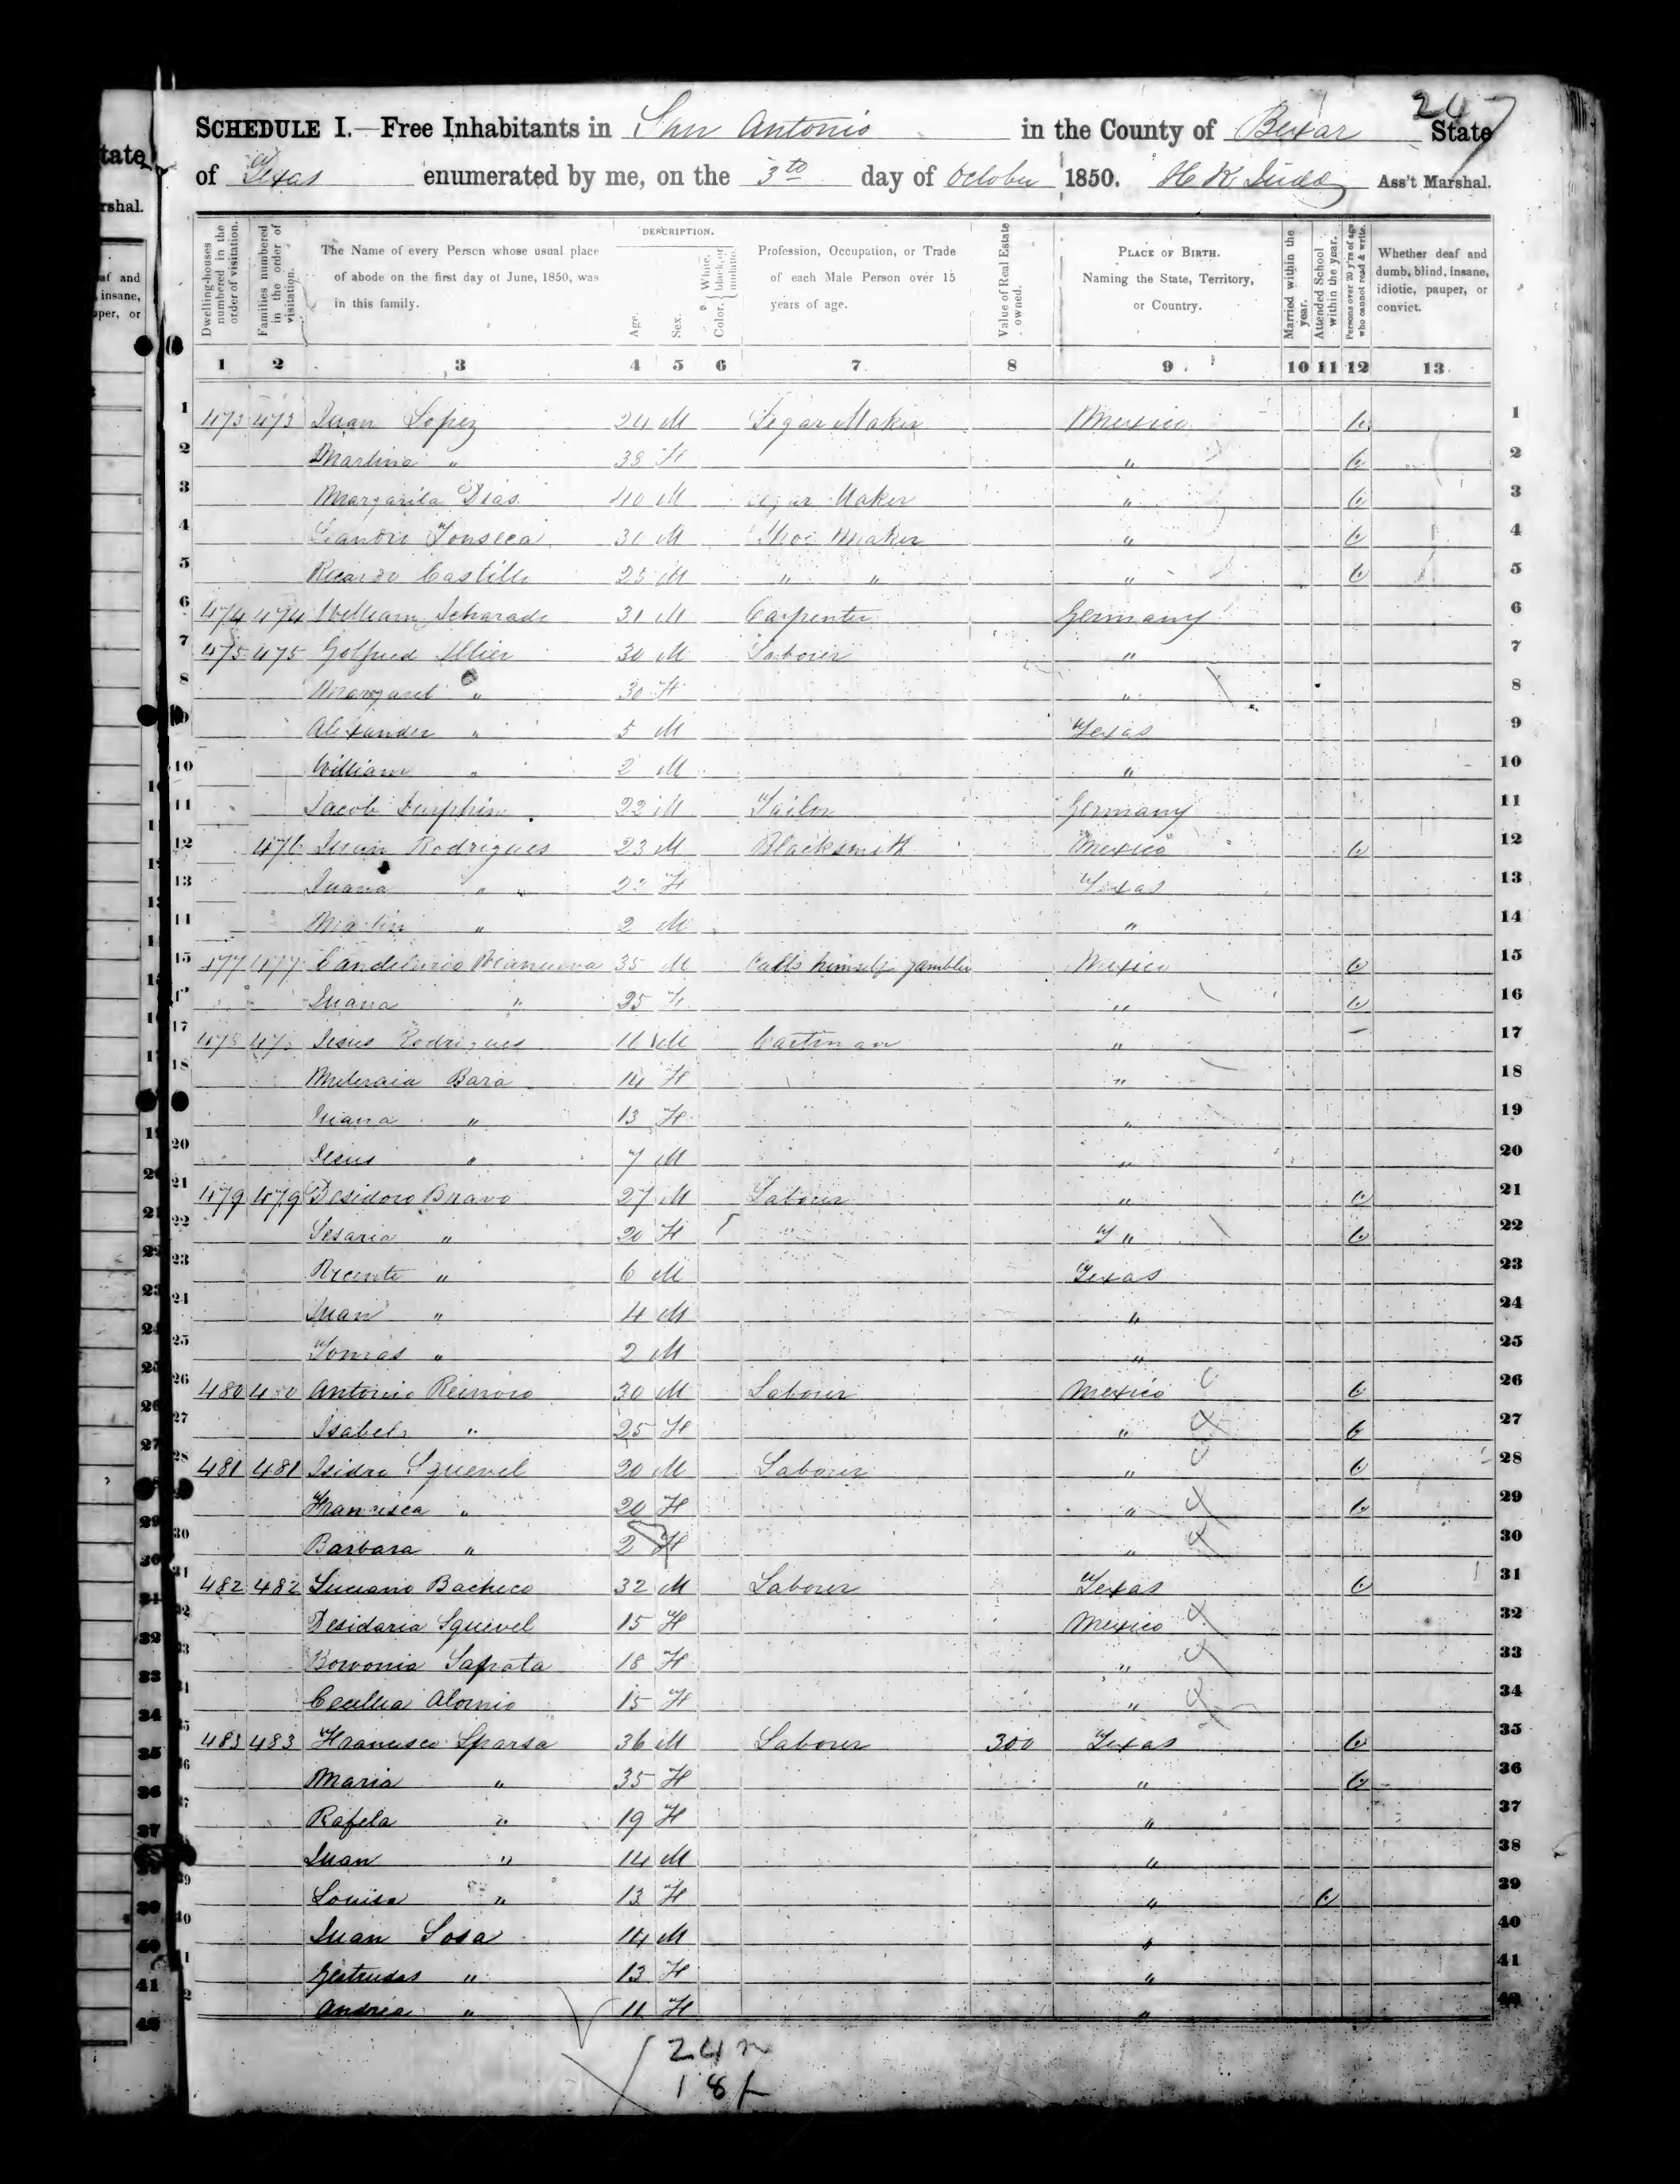 247
SCHEDULE I.—Free Inhabitants in San Antonio in the County of Bexar State
of Texas enumerated by me, on the 3th day of October 1850. H K Judd Ass't Marshal.
Dwelling-houses numbered in the order of visitation.
Families numbered in the order of visitation.
The Name of every Person whose usual place of abode on the first day of June, 1850, was in this family.
DESCRIPTION.
Age.
Sex.
Color, White, black, or mulatto.
Profession, Occupation, or Trade of each Male Person over 15 years of age.
Value of Real Estate owned.
PLACE OF BIRTH. Naming the State, Territory, or Country.
Married within the year.
Attended School within the year.
Persons over 20 y'rs of age who cannot read & write.
Whether deaf and dumb, blind, insane, idiotic, pauper, or convict.
1 2 3 4 5 6 7 8 9 10 11 12 13
1 473 473 Juan Lopez 24 M Segar Maker Mexico 1
2 Martina " 38 F " 2
3 Margarita Dias 40 M Segar Maker " 3
4 Fonseca 30 M Shoe Maker " 4
5 Ricardo Castillo 25 M " " " 5
6 474 474 William Scharade 31 M Carpenter Germany 6
7 475 475 Golfried 30 M Laborer " 7
8 Margaret " 30 F " 8
9 Alexander " 5 M Texas 9
10 William " 2 M " 10
11 Jacob 22 M Tailor Germany 11
12 476 Juan Rodrigues 23 M Blacksmith Mexico 12
13 Juana " 22 F Texas 13
14 Martin " 2 M " 14
15 477 477 Candelario 35 M Calls himself gambler Mexico 15
16 Juana " 25 F " 16
17 478 478 Jesus Rodrigues 16 M Cartman " 17
18 Bara 14 F " 18
19 Juana " 13 F " 19
20 Jesus " 7 M " 20
21 479 479 Desidoro Bravo 27 M Laborer " 21
22 Sesaria " 20 F " 22
23 Vicente " 6 M Texas 23
24 Juan " 4 M " 24
25 Tomas " 2 M " 25
26 480 480 Antonio Reinoro 30 M Laborer Mexico 26
27 Isabel " 25 F " 27
28 481 481 Isidro Squevel 20 M Laborer " 28
29 Francisca " 20 F " 29
30 Barbara " 2 F " 30
31 482 482 Luciano Bacheco 32 M Laborer Texas 31
32 Desidaria Squevel 15 F Mexico 32
33 Bowonia Saprata 18 F " 33
34 Cecillia Alornio 15 F " 34
35 483 483 Francisco Sparsa 36 M Laborer 300 Texas 35
36 Maria " 35 F " 36
37 Rafela " 19 F " 37
38 Juan " 14 M " 38
39 Louisa " 13 F " 39
40 Juan Sosa 14 M " 40
41 Gertrudas " 13 F " 41
42 Andrea " 11 F " 42
24 m
18 f